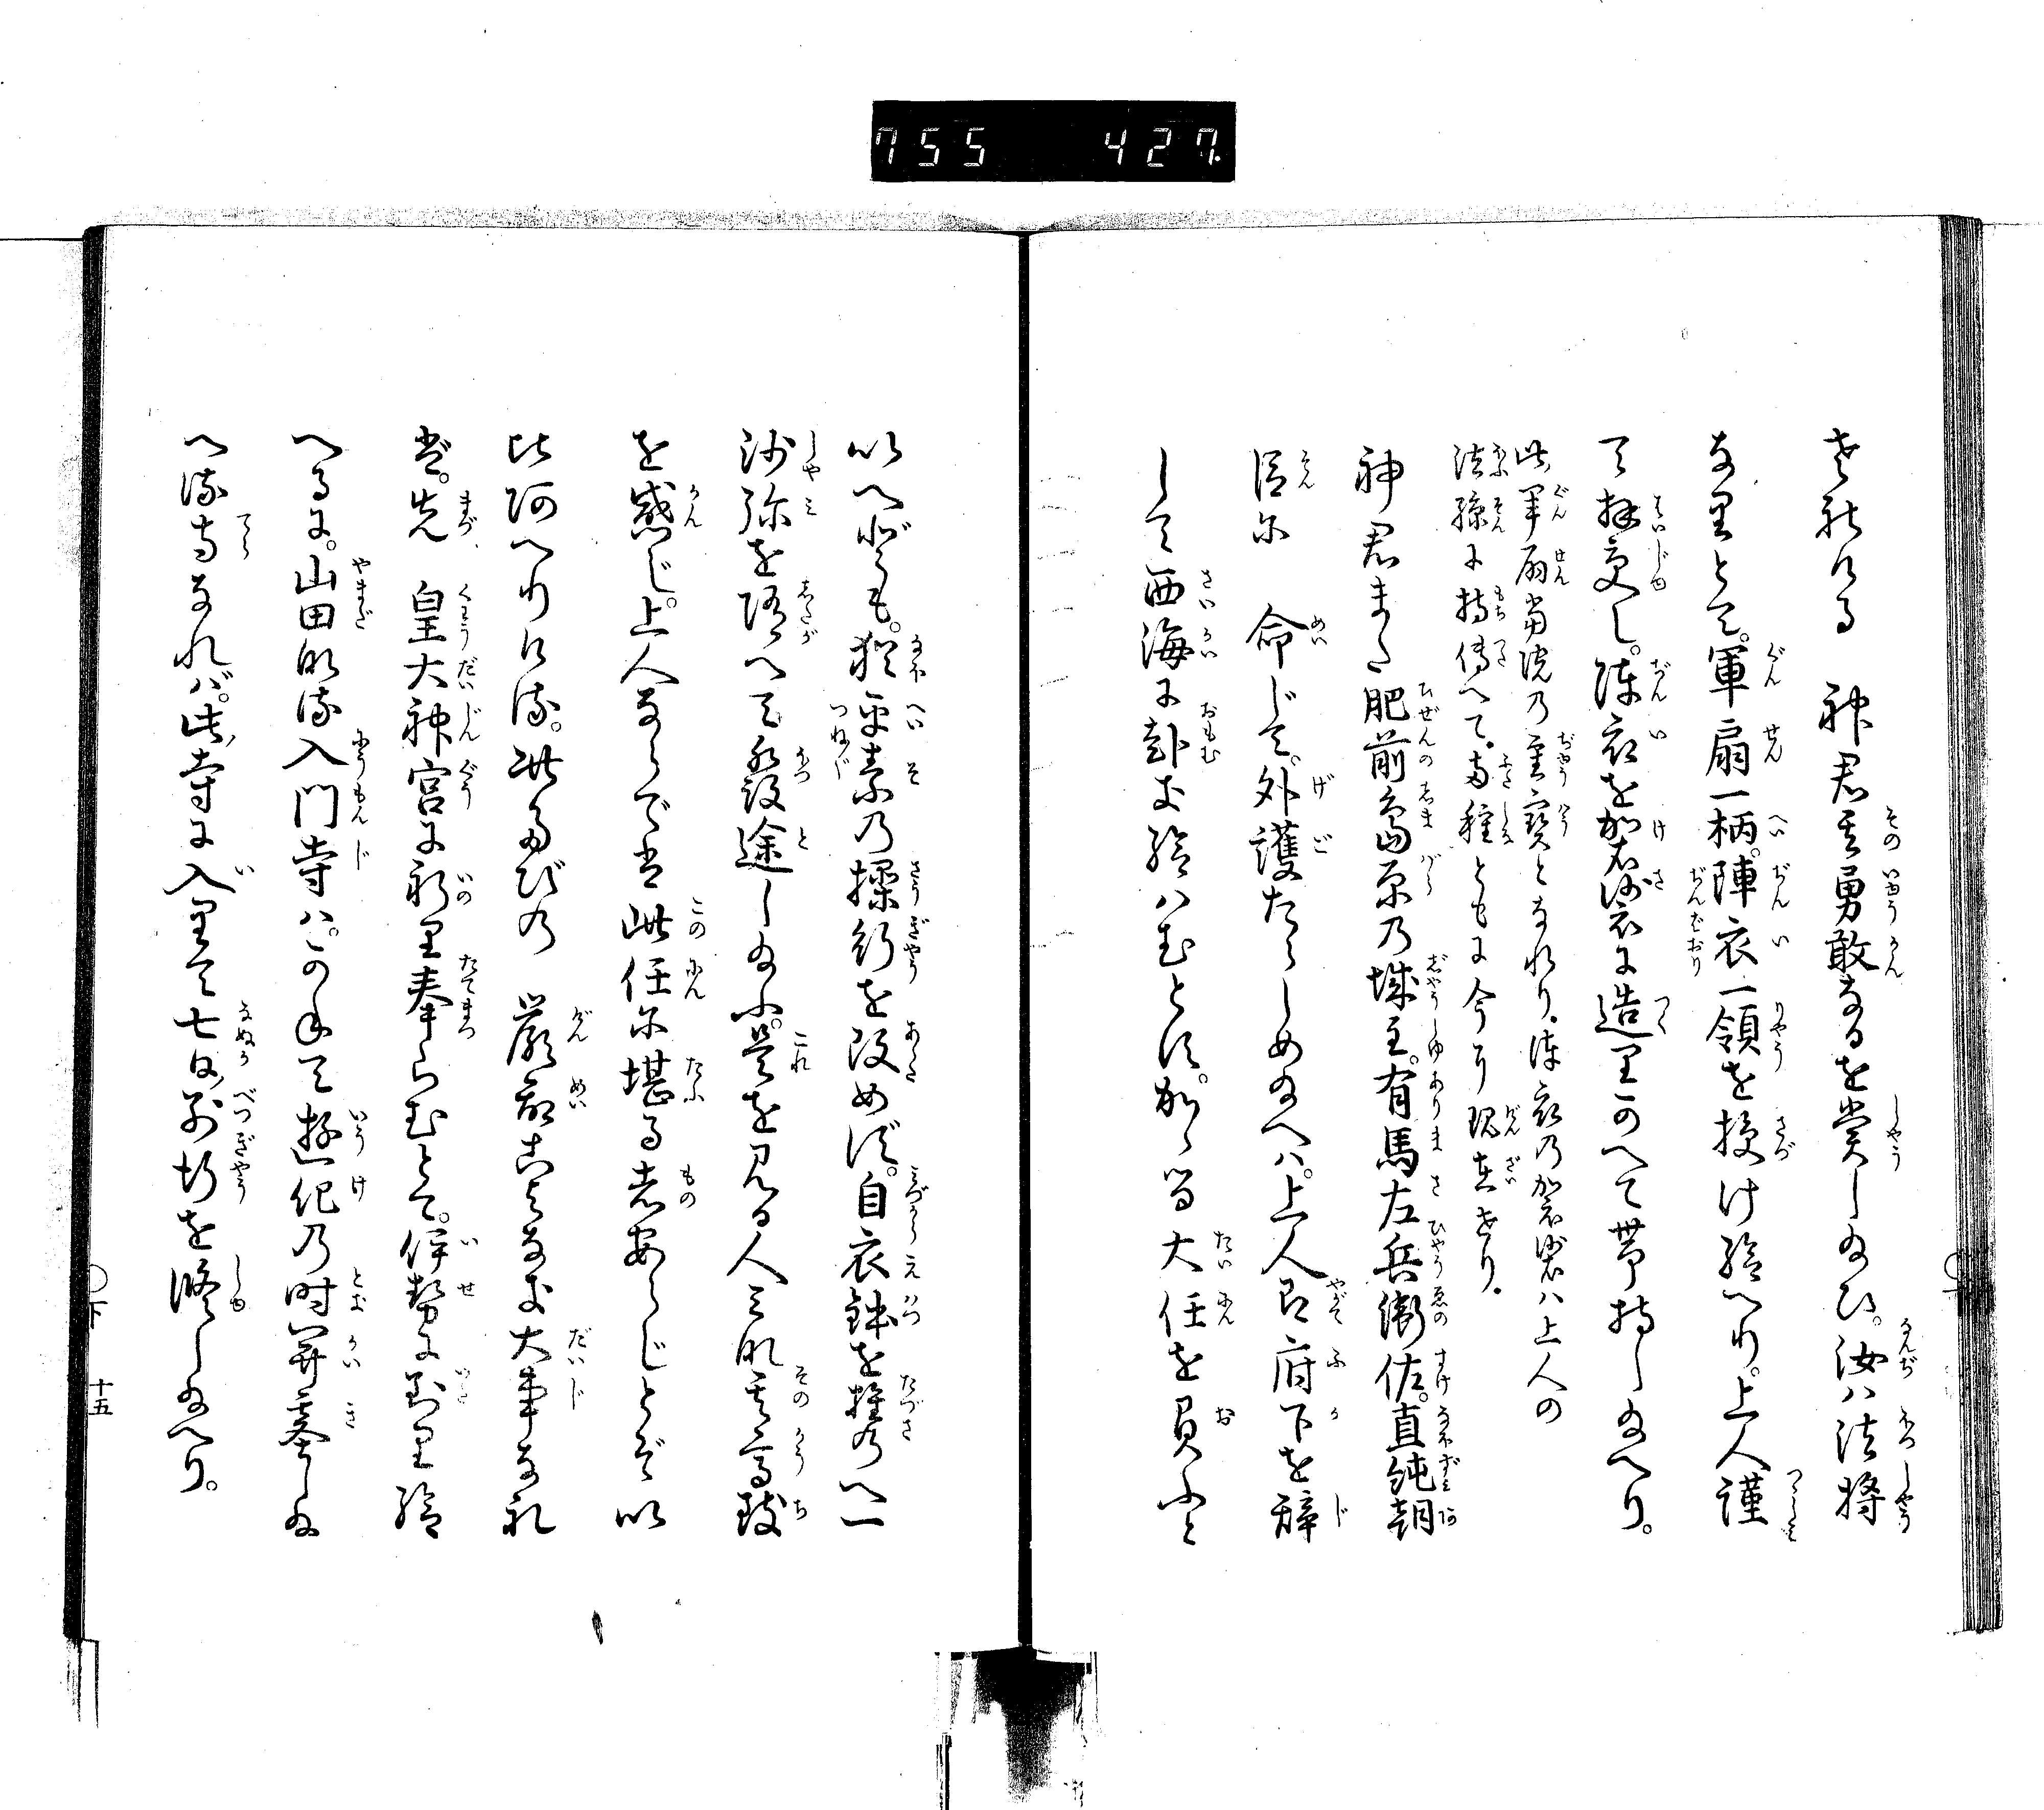 755 427.
せられける 神君其勇敢なるを賞し給ひ。汝ハ法将
なりとて。軍扇一柄。陣衣一領を授け給へり。上人謹
て拝受し。陣衣を袈裟に造りかへて帯持し給へり。
此軍扇当院の重宝となれり。陣衣の袈裟ハ上人の
法孫に持傳へて。両種ともに今に現在せり。
神君また肥前島原の城主。有馬左兵衛佐。直純朝
臣に 命じて。外護たらしめ給へハ。上人即府下を辞
して西海に赴き給ハむとす。かゝる大任を負ふと
いへども。猶平素の操行を改めず。自衣鉢を携へ一
沙弥を随へて發途し給ふ。是を見る人ミな其高致
を感じ。上人ならでは此任に堪る者あらじとぞい
ひあへりける。此たびの 厳命ことなる大事なれ
ば。先 皇大神宮に祈り奉らむとて。伊勢に到り給
へるに。山田なる入門寺ハ。かねて遊化の時開基し給
へる寺なれバ。此寺に入りて七日別行を修し給へり。
○下 十五